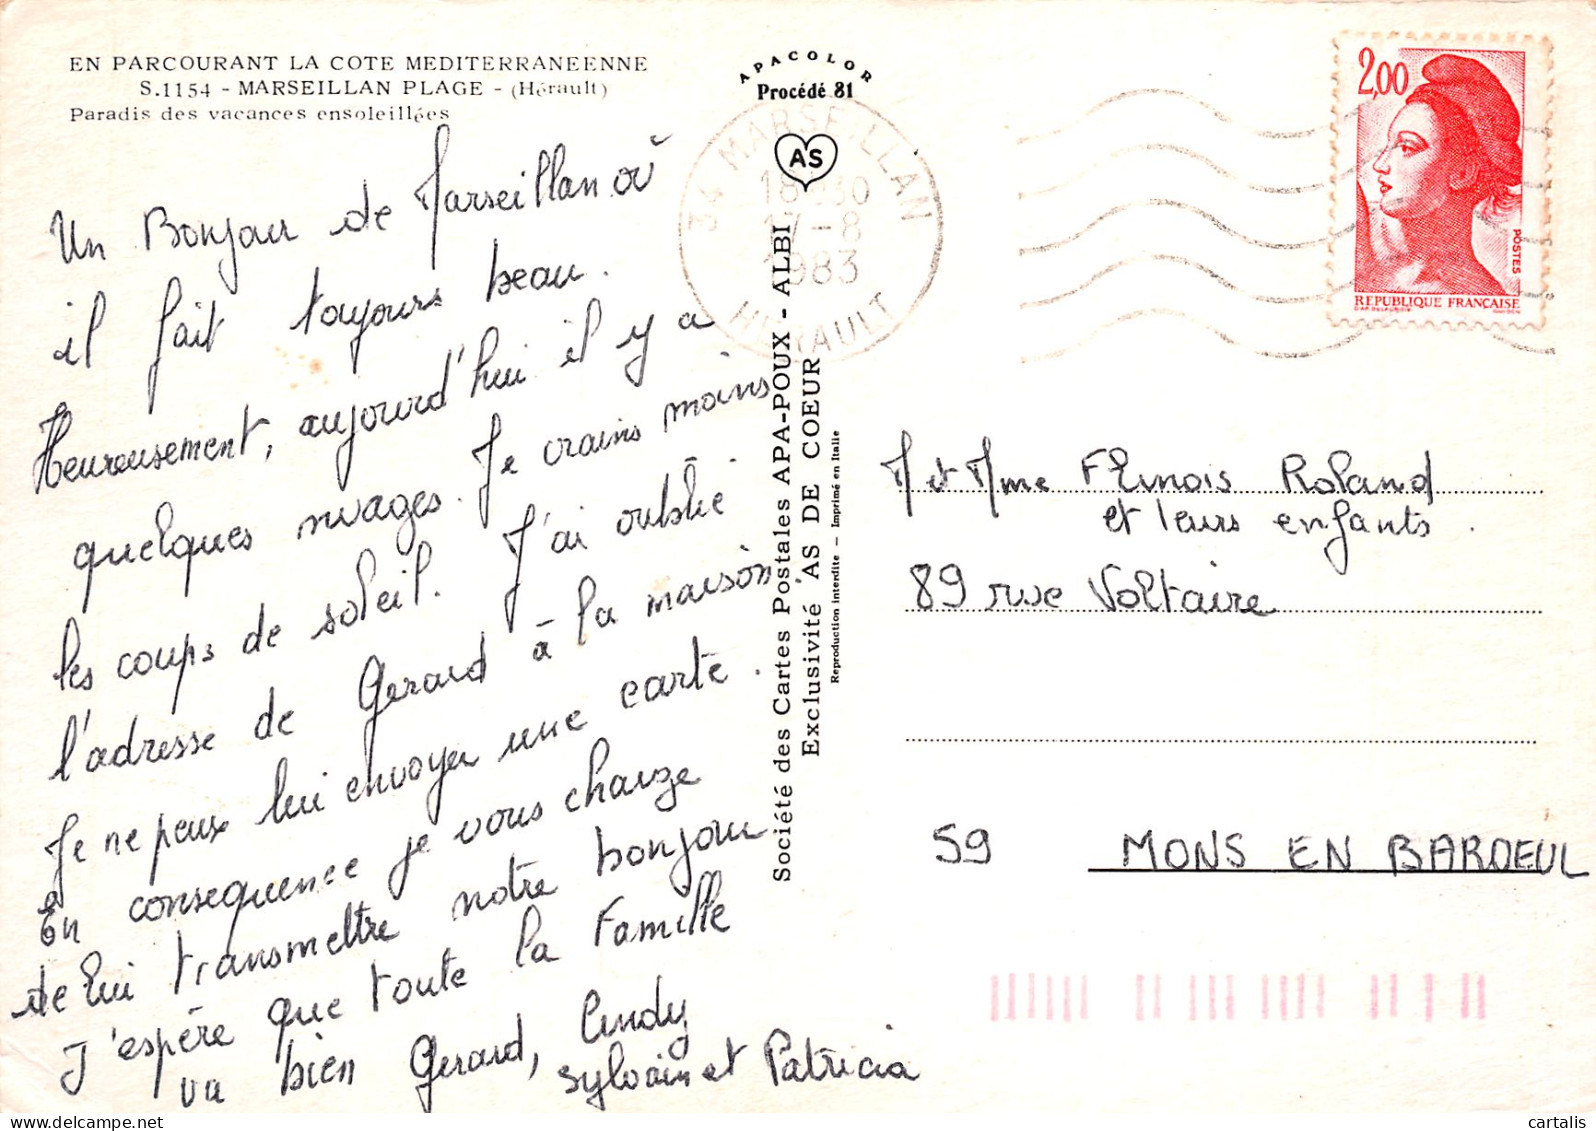 EN PARCOURANT LA COTE MEDITERRANEENNE
S.1154 - MARSEILLAN PLAGE - (Hérault)
Paradis des vacances ensoleillées
Un Bonjour de Marseillan où
il fait toujours beau.
Heureusement, aujourd'hui il y a
quelques nuages. Je crains moins
les coups de soleil. J'ai oublié
l'adresse de Gerard à la maison
Je ne peux lui envoyer une carte.
En consequence je vous charge
de lui transmettre notre bonjour
J'espère que toute la Famille
va bien Gerard, Cindy
Sylvain et Patricia
APACOLOR
Procédé 81
AS
Société des Cartes Postales APA-POUX - ALBI
Exclusivité AS DE COEUR
Reproduction interdite - Imprimé en Italie
34 MARSEILLAN
18H30
17-8
1983
HERAULT
2,00
POSTES
REPUBLIQUE FRANÇAISE
D'AP. DELACROIX GANDON
M et Mme Flinois Roland
et leurs enfants.
89 rue Voltaire
59 MONS EN BAROEUL
cartalis.com